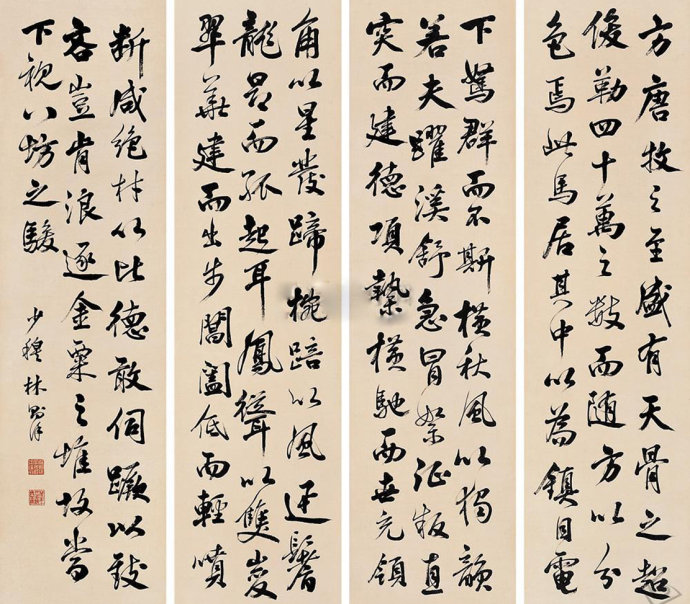 方唐牧之至盛有天骨之超
俊勒四十萬之數而随方以分
色焉此馬居其中以為鎮目電
下駑群而不斯橫秋風以獨韻
若夫躍溪舒急冒絮征叛直
突而建德項縶橫馳而世充領
角以星發蹄椀踣以風迅鬐
龍顒而孤起耳鳳聳以雙峻
翠華建而出步閶闔低而輕噴
斷咸絕材以比德敢伺蹶以致
吝豈肯浪逐金粟之堆故當
下視八坊之駿
少穆林則徐